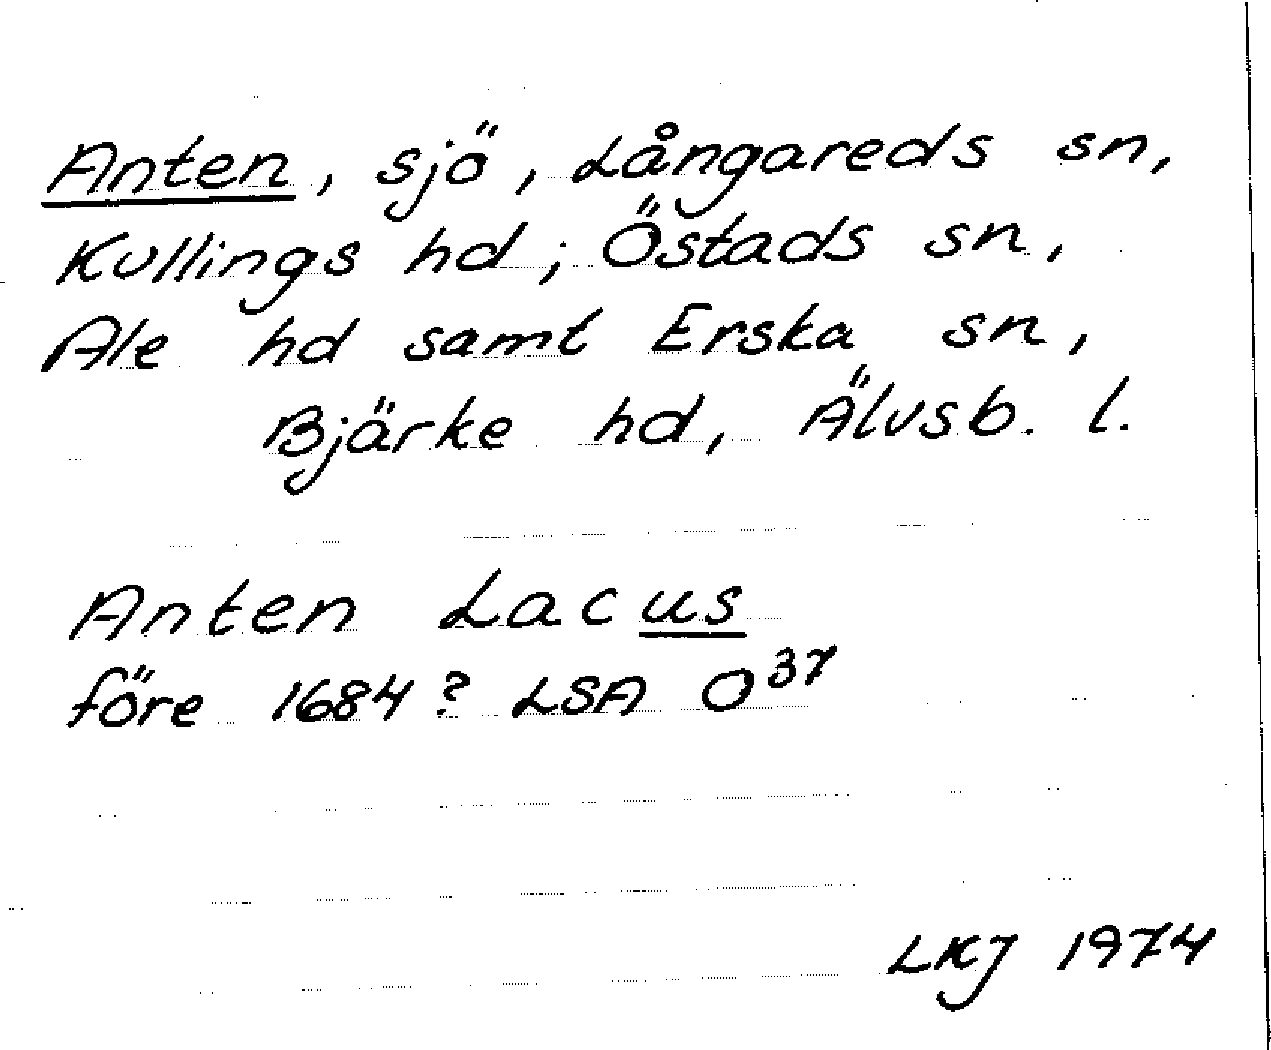 Anten, sjö, Långareds sn,
Kullings hd; Östads sn,
Ale hd samt Erska sn,
Bjärke hd, Älvsb. l.
Anten Lacus
före 1684? LSA O³⁷
LKJ 1974